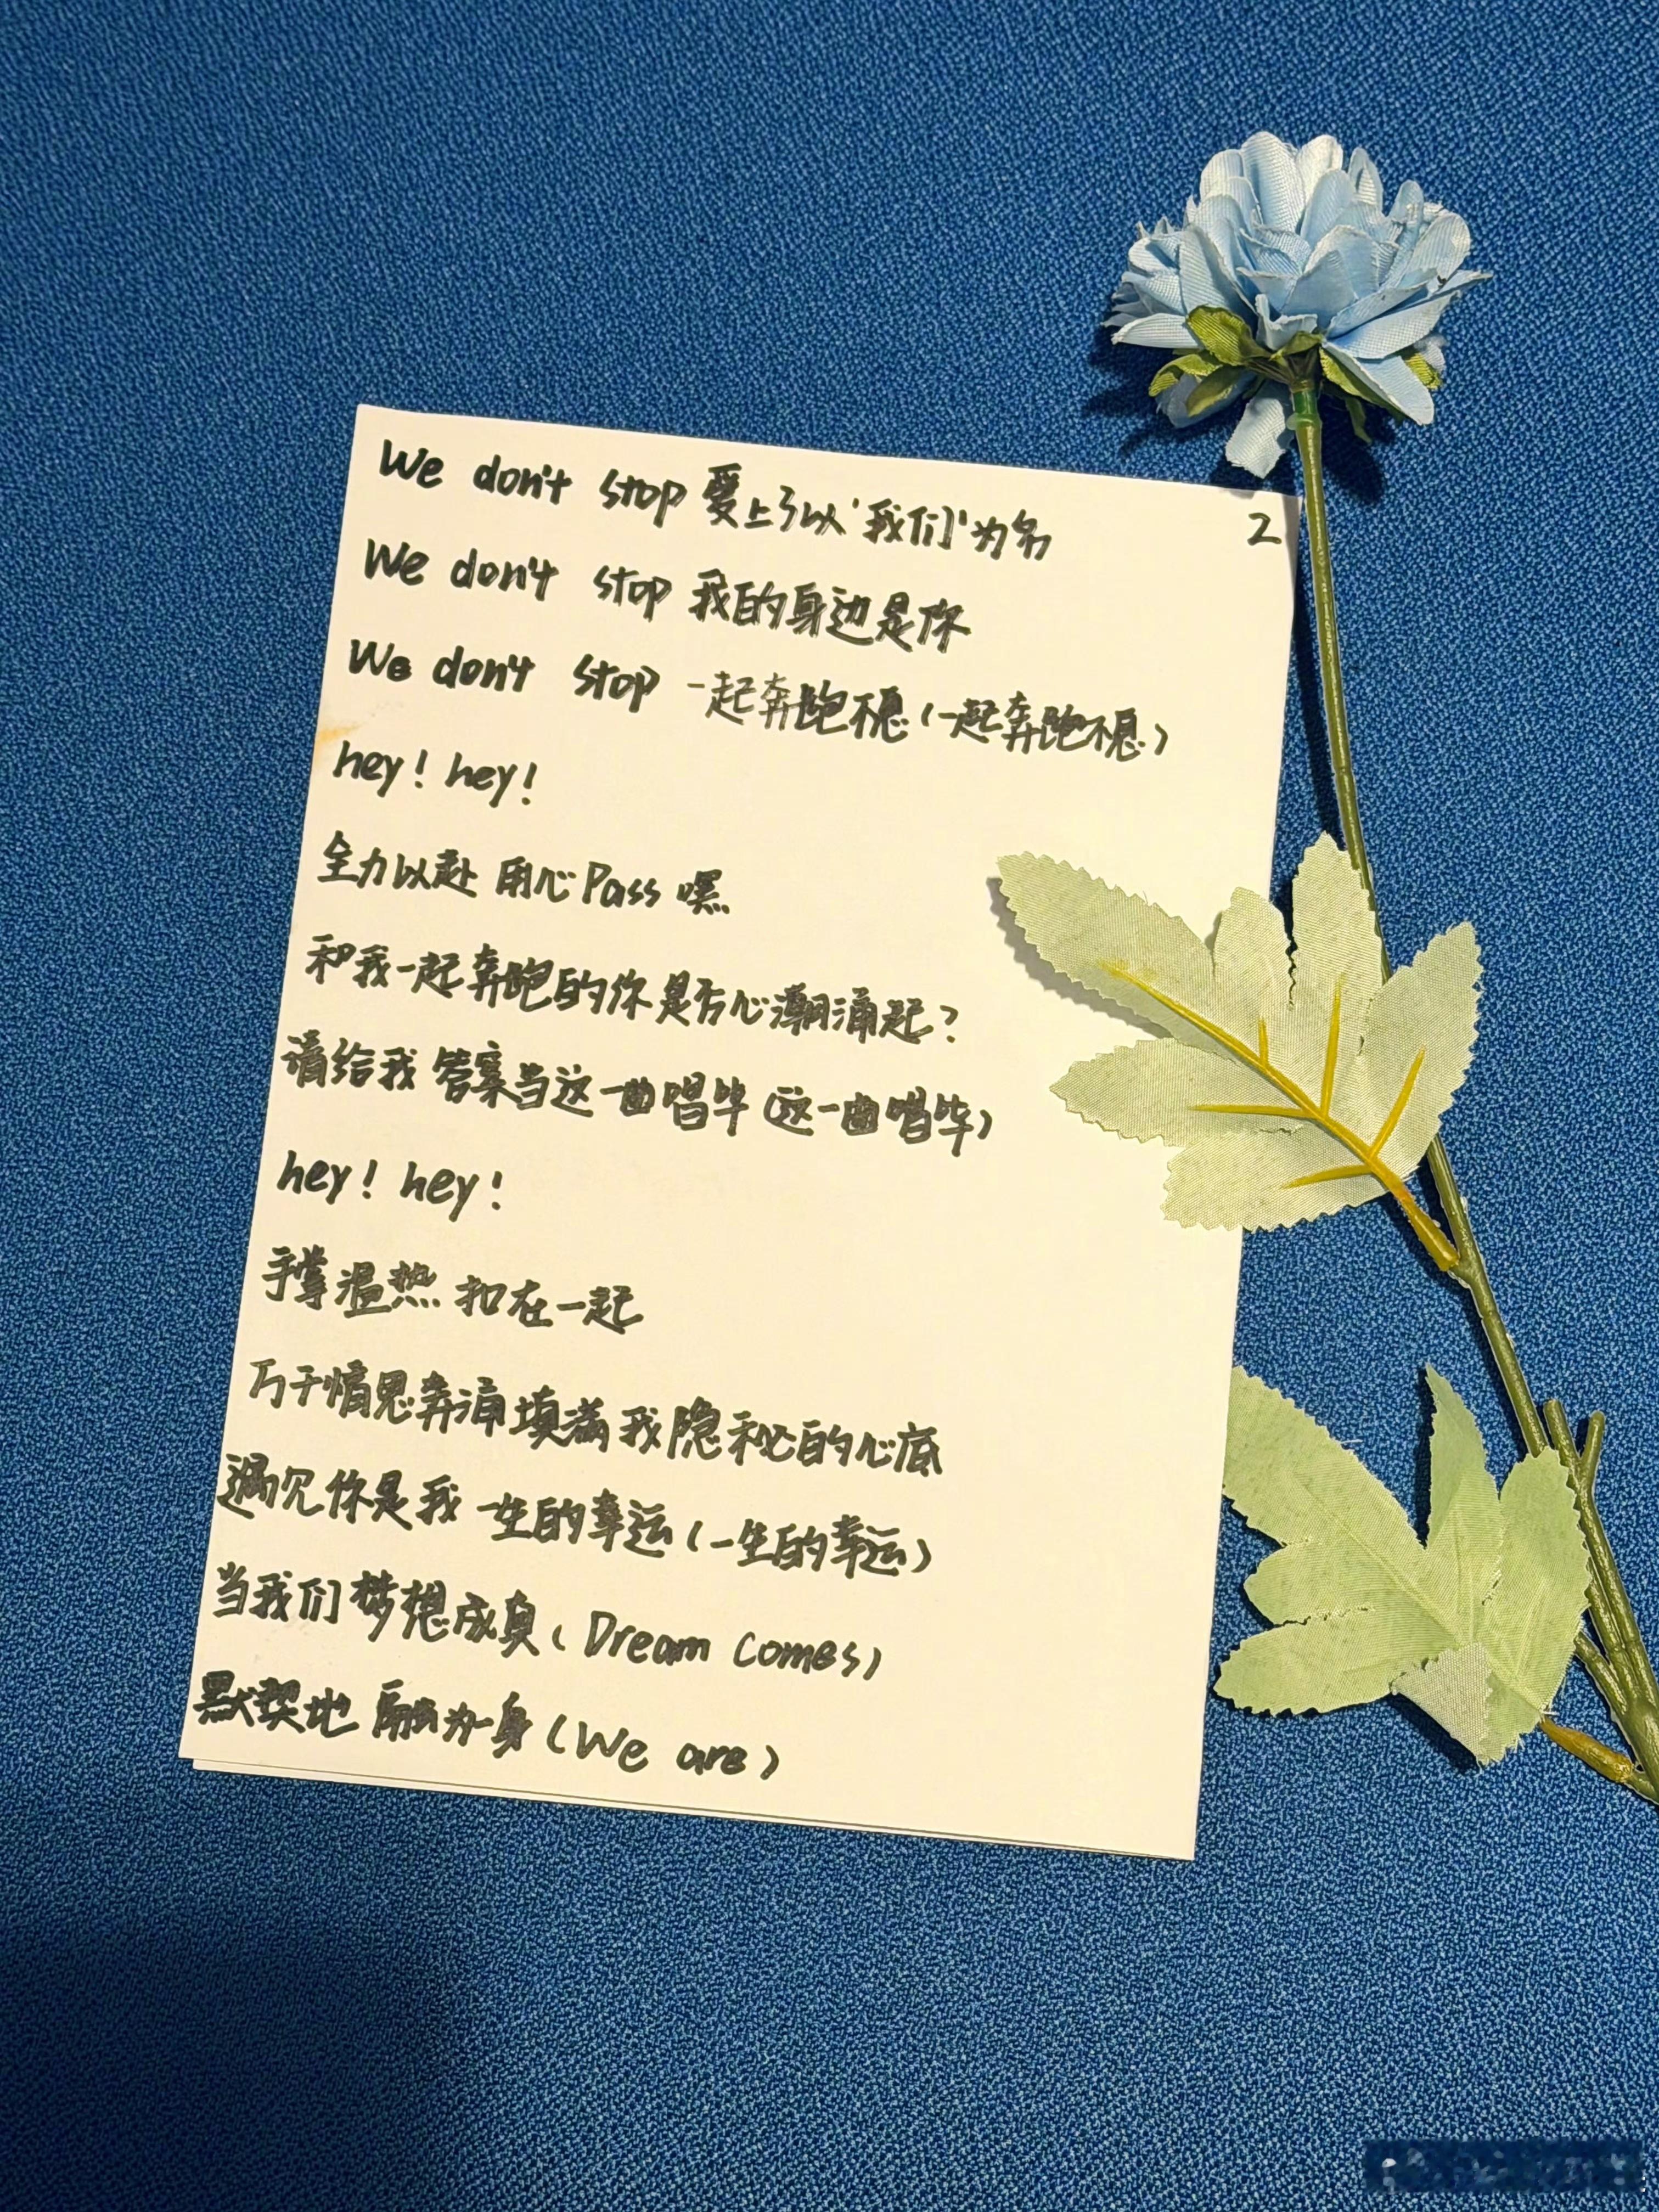 We don't stop 爱上了以'我们'为名
2
We don't stop 我的身边是你
We don't stop 一起奔跑不息(一起奔跑不息)
hey! hey!
全力以赴 用心Pass 嘿
和我一起奔跑的你是否心潮涌起?
请给我答案当这一曲唱毕(这一曲唱毕)
hey! hey!
手掌温热 扣在一起
万千情思奔涌填满我隐秘的心底
遇见你是我一生的幸运(一生的幸运)
当我们梦想成真(Dream comes)
默契地融为一身(We are)